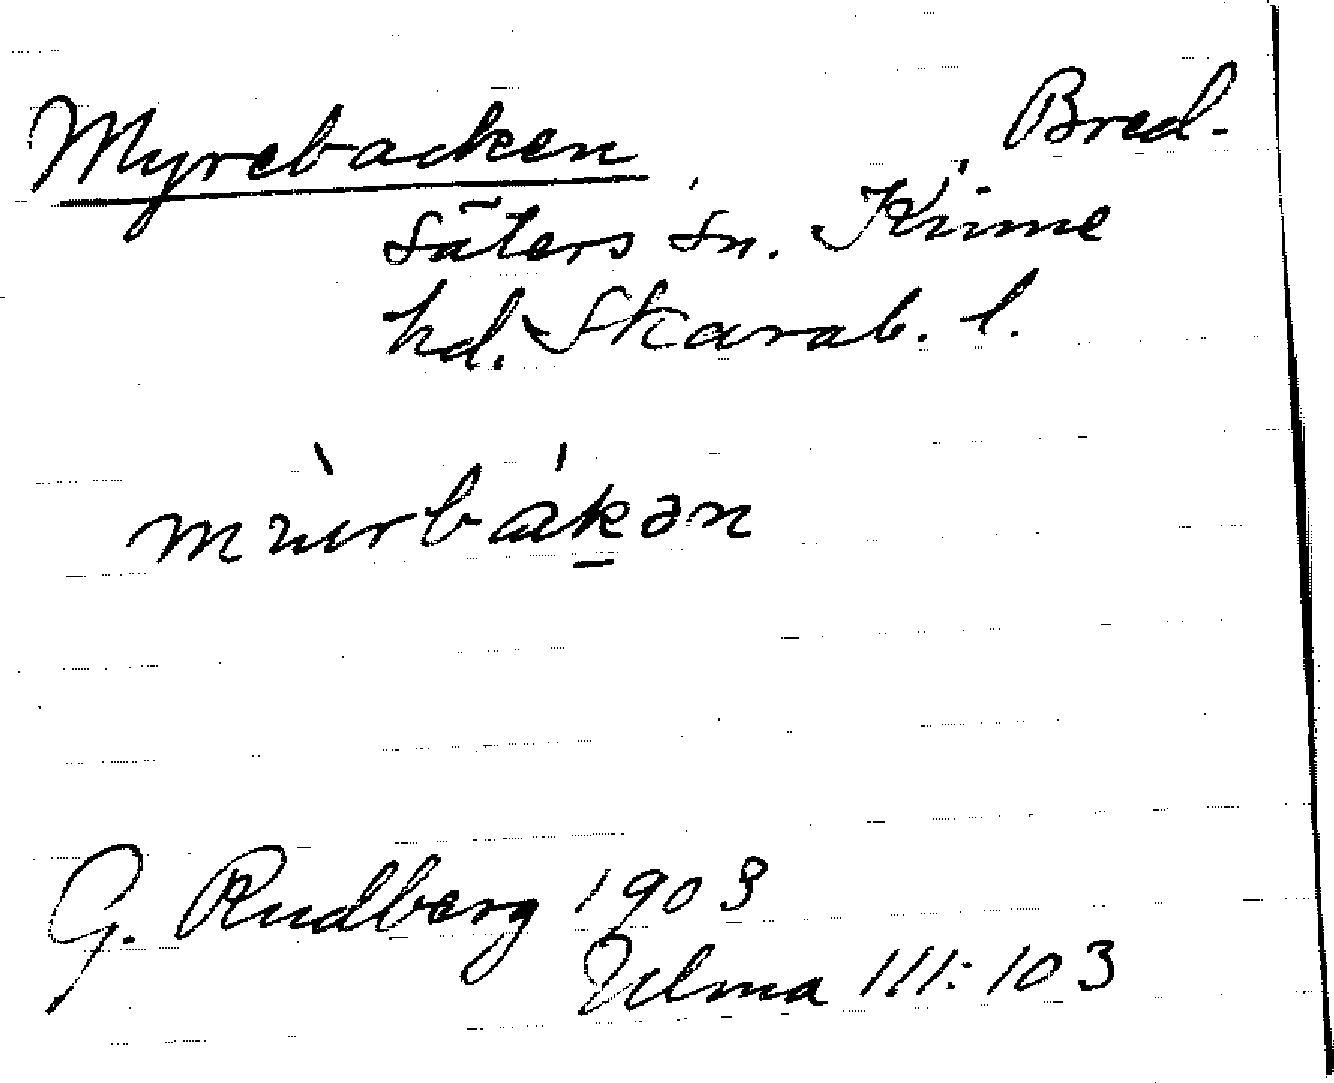 Myrebacken Bred-
säters sn. Kinne
hd. Skarab. l.
G. Rudberg 1903
Ulma 111:103